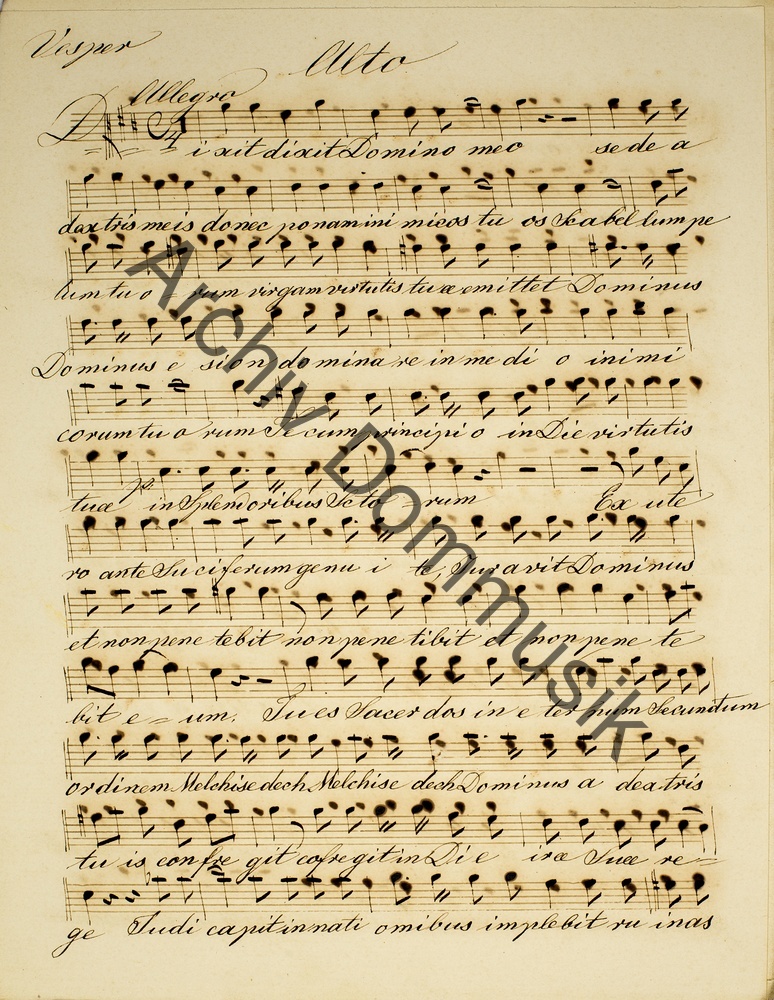 Vesper
Alto
Allegro
Dixit dixit Domino meo sede a
dextris meis donec ponam ini micos tu os Scabel lum pe
tum tu o = rum virgam virtutis tuæ emittet Dominus
Dominus e sion domina re in me di o inimi
corum tu o rum Te cum principi o in Die virtutis
tuæ p: in Splendoribus Scto = rum Ex ute
ro ante Luciferum genu i te, Juravit Dominus
et non pene tebit non pene tibit et non pene te
bit e = um. Tu es Sacer dos in e ter num Secundum
ordinem Melchisedech Melchise dech Dominus a dextris
tu is con fre git cofregit in Di e iræ Suæ re =
ge Judi capit in nati omibus implebit ru inas
Archiv Dommusik